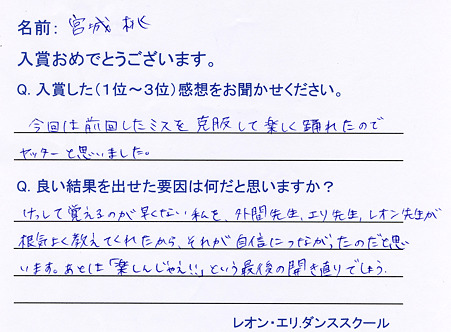 名前: 宮城 桃
入賞おめでとうございます。
Q. 入賞した(1位～3位)感想をお聞かせください。
今回は前回したミスを克服して楽しく踊れたので
ヤッターと思いました。
Q. 良い結果を出せた要因は何だと思いますか？
けっして覚えるのが早くない私を、外間先生、エリ先生、レオン先生が
根気よく教えてくれたから、それが自信につながったのだと思
います。あとは「楽しんじゃえ!!」という最後の開き直りでしょう.
レオン・エリ.ダンススクール